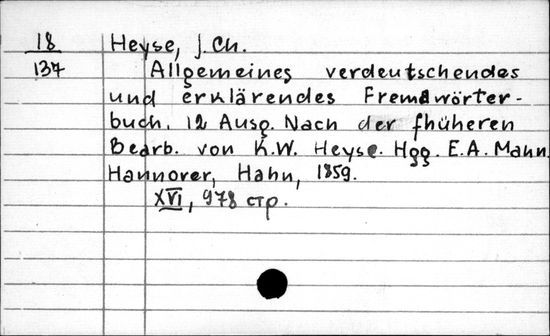 18 Heyse, J. Ch.
137 Allgemeines verdeutschendes
und erklärendes Fremdwörter-
buch. 12 Ausg. Nach der fhüheren
Bearb. von K.W. Heyse. Hgg. E.A. Mahn.
Hannover, Hahn, 1859.
XVI, 978 стр.